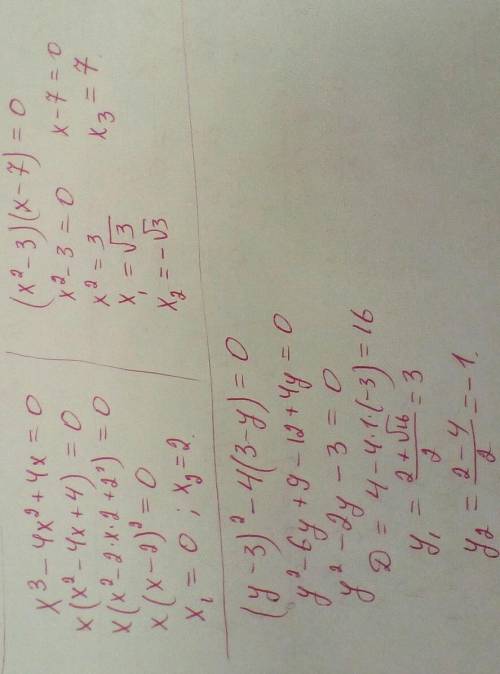 x³ - 4x² + 4x = 0
x(x² - 4x + 4) = 0
x(x² - 2·x·2 + 2²) = 0
x(x - 2)² = 0
x₁ = 0 ; x₂ = 2
(x² - 3)(x - 7) = 0
x² - 3 = 0 x - 7 = 0
x² = 3 x₃ = 7
x₁ = √3
x₂ = -√3
(y - 3)² - 4(3 - y) = 0
y² - 6y + 9 - 12 + 4y = 0
y² - 2y - 3 = 0
D = 4 - 4·1·(-3) = 16
y₁ = (2 + √16)/2 = 3
y₂ = (2 - 4)/2 = -1.